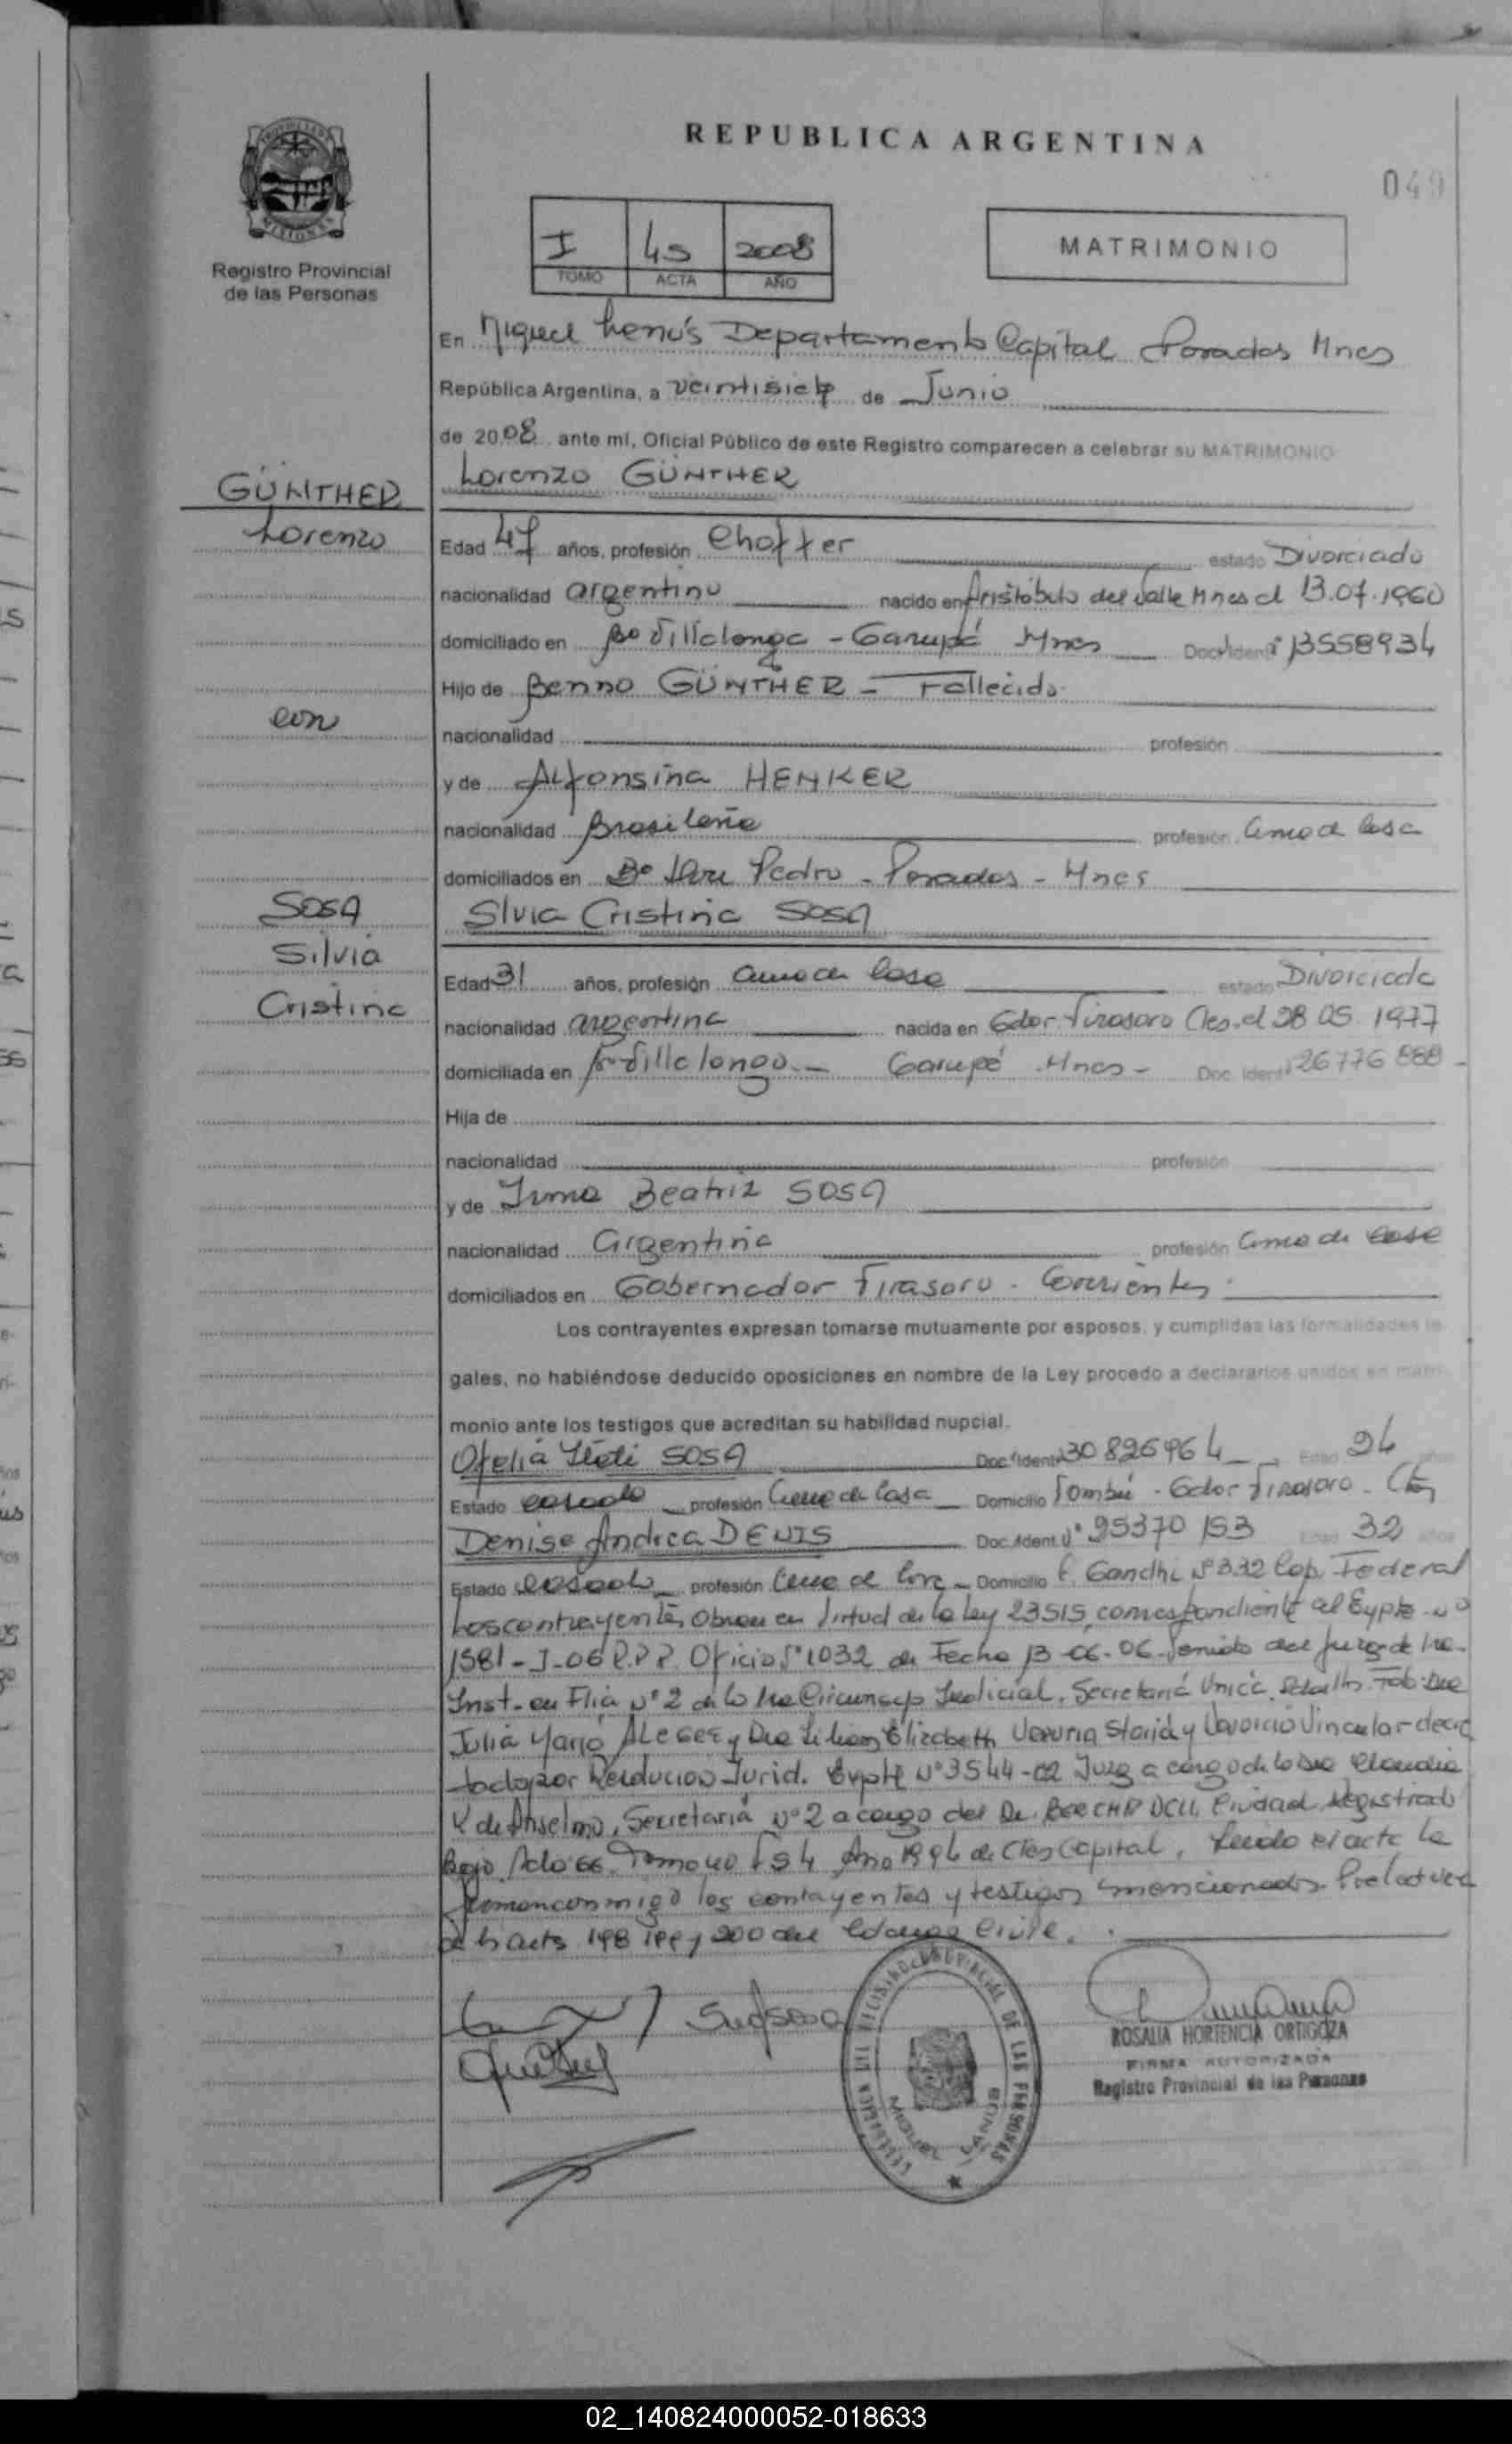 REPUBLICA ARGENTINA
049
PROVINCIA DE MISIONES
Registro Provincial
de las Personas
I 45 2008
TOMO ACTA AÑO
MATRIMONIO
En Miguel Lanús Departamento Capital Posadas Mnes
República Argentina, a veintisiete de Junio
de 2008 ante mí, Oficial Público de este Registro comparecen a celebrar su MATRIMONIO
GÜNTHER
Lorenzo
con
SOSA
Silvia
Cristina
Lorenzo GÜNTHER
Edad 47 años, profesión Choffer estado Divorciado
nacionalidad argentino nacido en Aristóbulo del Valle Mnes el 13.07.1960
domiciliado en Bº Villalonga - Garupá Mnes Doc. Ident. 13558934
Hijo de Benno GÜNTHER - Fallecido.
nacionalidad profesión
y de Alfonsina HENKER
nacionalidad Brasileña profesión ama de casa
domiciliados en Bº San Pedro - Posadas - Mnes
Slvia Cristina SOSA
Edad 31 años, profesión ama de casa estado Divorciada
nacionalidad argentina nacida en Gdor. Virasoro Ctes. el 28 05 1977
domiciliada en Bº Villalonga - Garupá Mnes - Doc. Ident. 26776888 -
Hija de
nacionalidad profesión
y de Irma Beatriz SOSA
nacionalidad Argentina profesión ama de casa
domiciliados en Gobernador Virasoro - Corrientes.
Los contrayentes expresan tomarse mutuamente por esposos, y cumplidas las formalidades le-
gales, no habiéndose deducido oposiciones en nombre de la Ley procedo a declararlos unidos en matri-
monio ante los testigos que acreditan su habilidad nupcial.
Ofelia SOSA Doc. Ident. 30826964 Edad 24 años
Estado casada profesión ama de casa Domicilio Tombú - Gdor Virasoro - Ctes
Denise Andrea DENIS Doc. Ident. Nº 95370153 Edad 32 años
Estado casada profesión ama de casa Domicilio Gandhi Nº 332 Cap. Federal
Los contrayentes obran en virtud de la Ley 23515, correspondiente al Expte. Nº
1581-J-06 R.P.P. Oficio Nº 1032 de Fecha 13-06-06 del Juzg. de 1ra.
Inst. en Flia Nº 2 de la 1ra Circunscp Judicial, Secretaría Única
Julia María ALEGRE y Dra Lilian Elizabeth y Divorcio Vincular decre
tado por Resolución Jurid. Expte Nº 3544-02 Juzg a cargo de la Dra Claudia
K de Anselmo, Secretaría Nº 2 a cargo del Dr. Ciudad, Registrado
Bajo Acta 66 Tomo Año 1996 de Ctes Capital, Leída el acta la
firman conmigo los contrayentes y testigos mencionados. Prelectura
de los arts 198 199 y 200 del Código Civil.
MIGUEL LANUS
ROSALIA HORTENCIA ORTIGOZA
FIRMA AUTORIZADA
Registro Provincial de las Personas
02_140824000052-018633